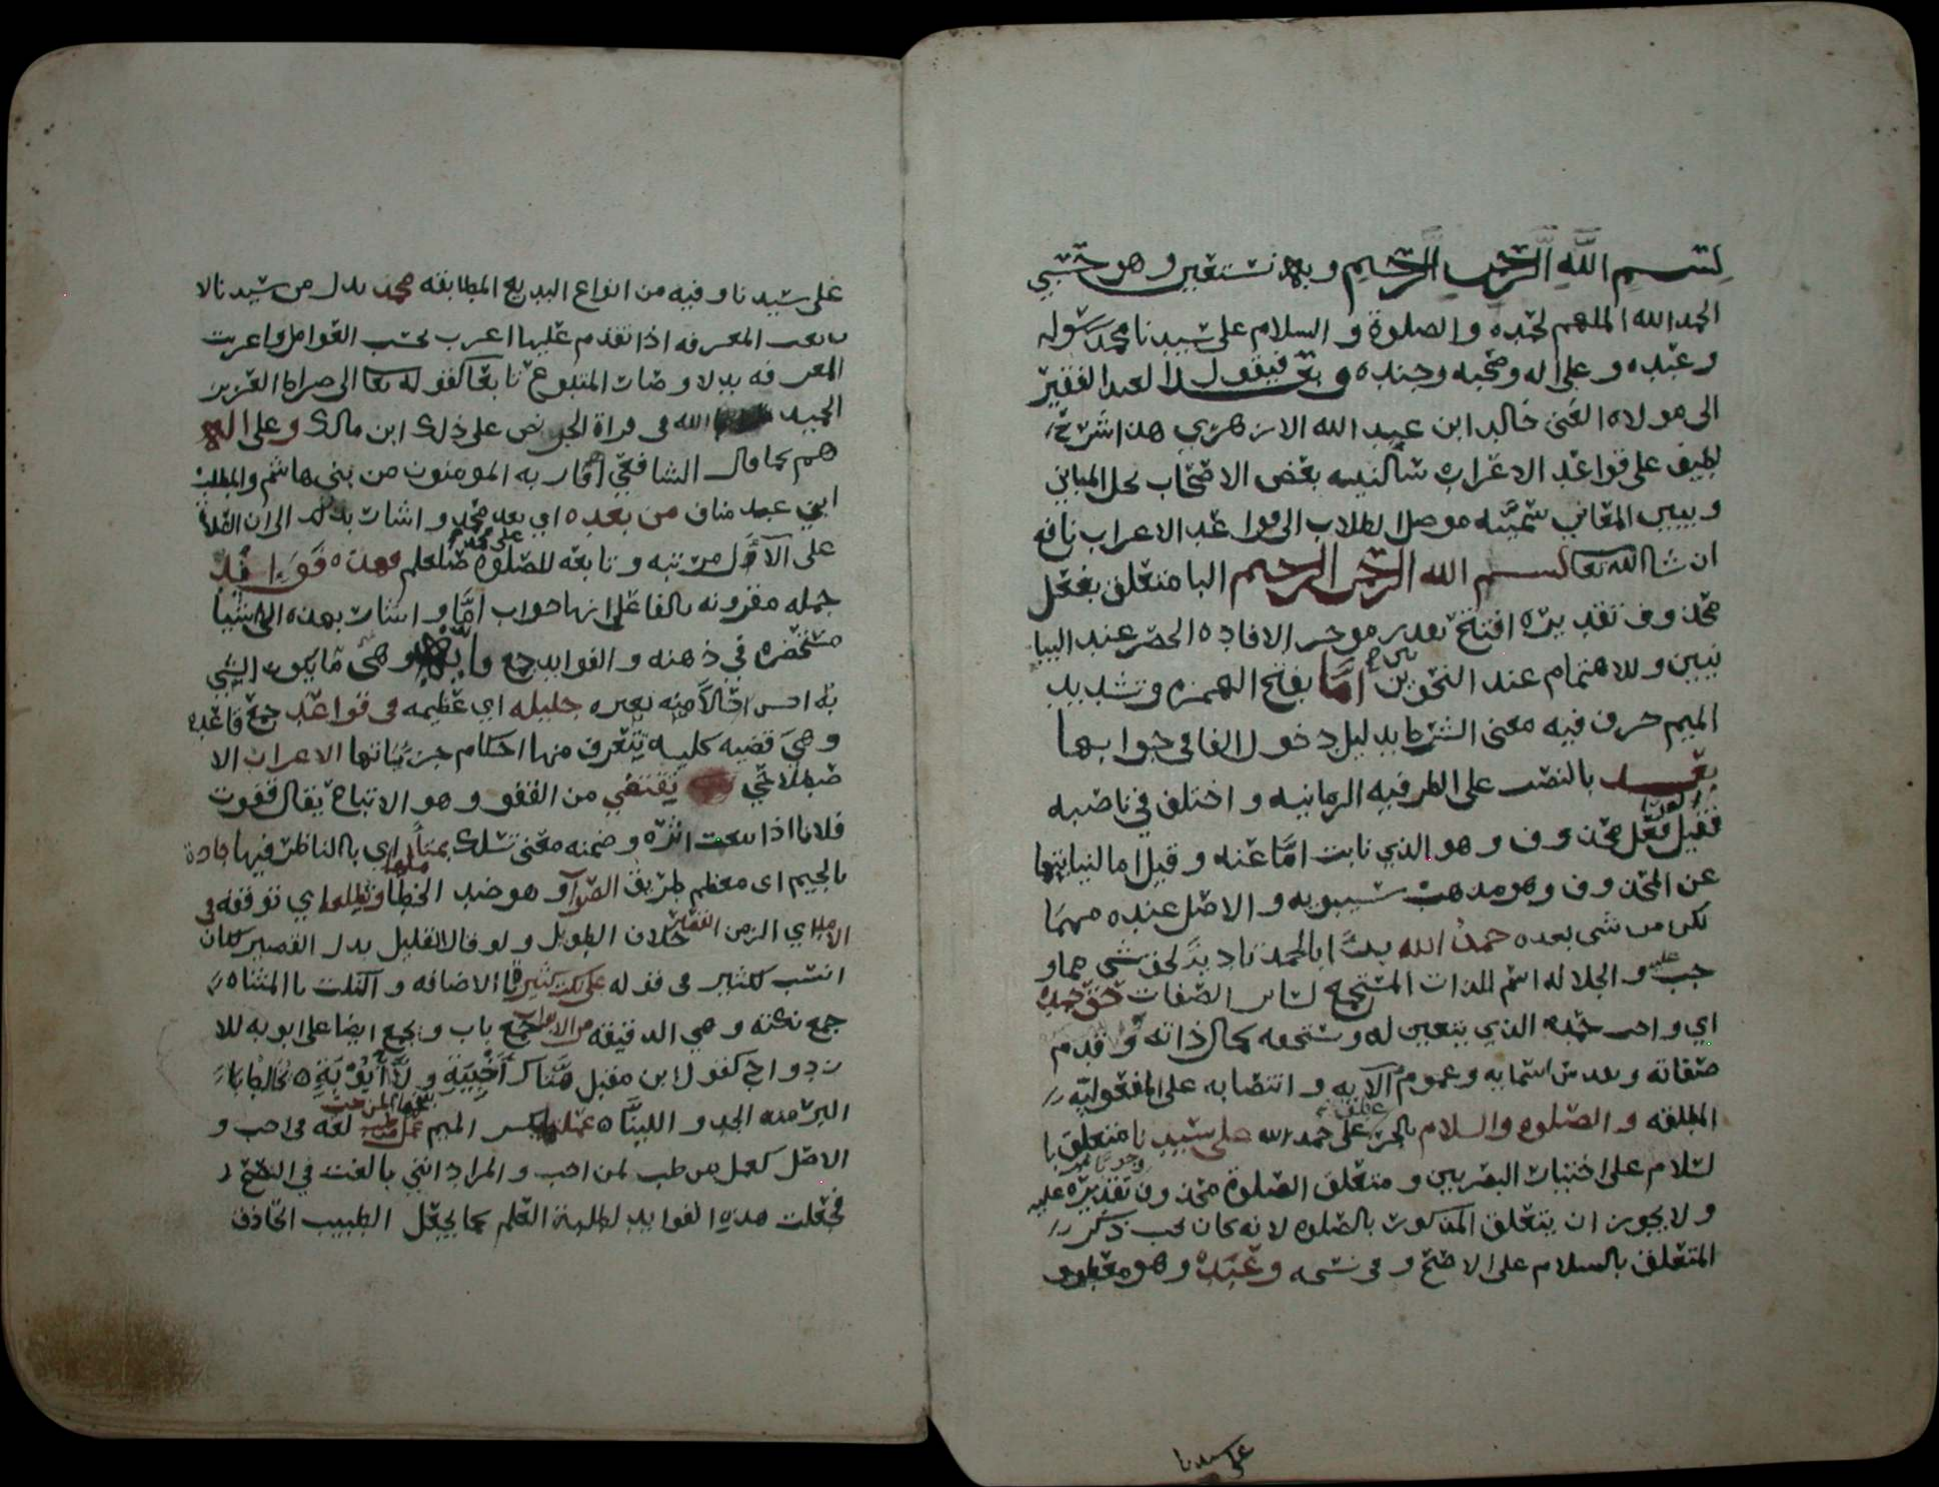 بسم الله الرحمن الرحيم وبه نستعين وهو حسبي
الحمد الله الملهم لحمده والصلوة والسلام على سيدنا محمد رسوله
وعبده وعلى اله وصحبه وجنده وبعد فيقول العبد الفقير
الى مولاه الغني خالد ابن عبد الله الازهري هذا شرح
لطيف على قواعد الاعراب سالنيه بعض الاصحاب يحل المباني
ويبين المعاني سميته موصل الطلاب الى قواعد الاعراب نافع
ان شا الله تعا بسم الله الرحمن الرحيم البا متعلق بفعل
محذوف تقديره افتتح موخر الافاده الحصر عند البيا
نيين وللاهتمام عند النحويين اما بفتح الهمزه وتشديد
الميم حرف فيه معنى الشرط بدليل دخول الفا في جوابها
بعد بالنصب على الظرفيه الزمانيه واختلف في ناصبه
فقيل فعل محذوف وهو الذي نابت اما عنه وقيل اما لنيابتها
عن المحذوف وهو مذهب سيبويه والاصل عنده مهما
يكن من شي بعده حمد الله
والجلاله اسم للذات المستجمع لساير الصفات حق حمده
اي واجب حمده الذي يتعين له ويستحقه لكمال ذاته وقدم
صفاته وتقدس اسمايه وعموم آلايه وانتصابه على المفعوليه
المطلقه والصلوه والسلام بالجر عطف على حمد الله على سيدنا متعلق با
لسلام على اختيار البصريين ومتعلق الصلوة محذوف تقديره عليه
ولا يجوز ان يتعلق المذكور بالصلوه لانه كان يجب ذكر
المتعلق بالسلام على الاصح وفي نسخه وعبده وهو معطوف
على سيدنا
على سيدنا وفيه من انواع البديع المطابقه محمد بدل من سيدنا لا
نعت المعرفه اذا تقدم عليها اعرب بحسب العوامل واعربت
المعرفه بدلا وصار المتبوع تابعا كقوله تعا الى صراط العزيز
الحميد الله في قراة الجر نص على ذلك ابن مالك وعلى اله
هم كما قال الشافعي اقاربه المومنون من بني هاشم والمطلب
ابني عبد مناف من بعده اي بعد محمد واشار بذلك الى ان الصلاة
على الآل مرتبه وتابعه للصلوة على محمد صلعم فهذه فوايد
جمله مقرونه بالفا على انها جواب اما واشار بهذه الى اشيا
مستحضره في ذهنه والفوايد جمع فايده وهي ما يكون الشي
به احسن حالا منه بغيره جليله اي عظيمه في قواعد جمع قاعده
وهي قضيه كليه يتعرف منها احكام جزئياتها الاعراب الا
صطلاحي يقتفي من القفو وهو الاتباع يقال قفوت
فلانا اذا تبعت اثره وضمنه معنى تسلك بمتاملها اي بالناظر فيها جادة
بالجيم اي معظم طريق الصواب وهو ضد الخطا وتطلعه اي توقفه في
الامد اي الزمن القصير خلاف الطويل ولو قال القليل بدل القصير لكان
انسب لكثير في قوله على نكت كثير بالاضافه والنكت بالمثناه
جمع نكته وهي الدقيقه من الابواب جمع باب ويجمع ايضا على ابوبه للا
زدواج كقول ابن مقبل هتاك اخبية ولاج ابوبة يخالط
البر منه الجد واللينا عملتها بكسر الميم عمل من طب لمن حب لغه في احب و
الاصل كعمل من طب لمن احب والمراد انني بالغت في النصح
فجعلت هذه الفوايد لطلبة العلم كما يجعل الطبيب الحاذق